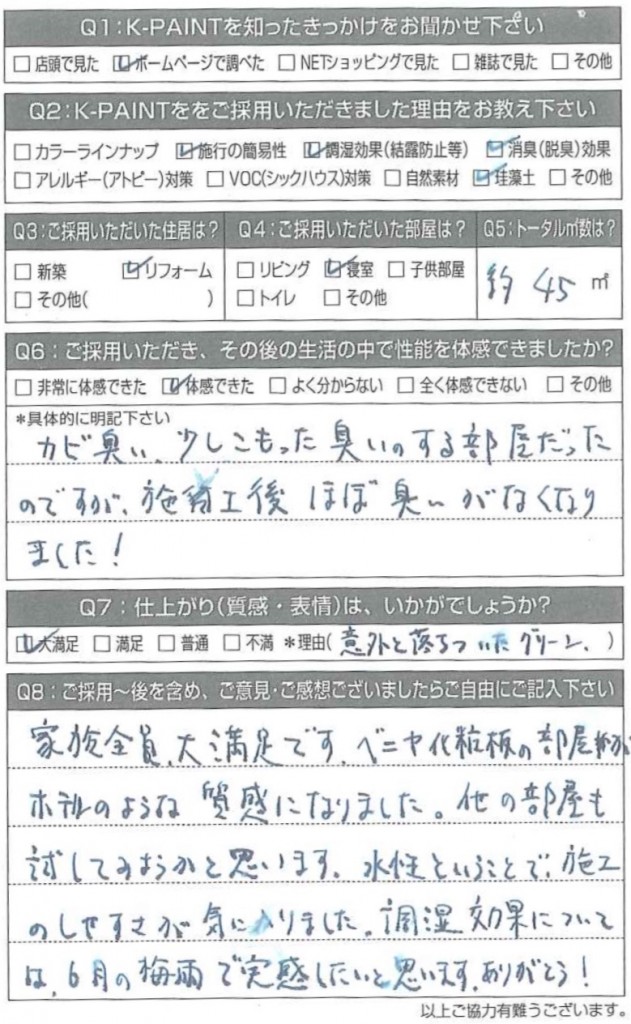 Q1：K-PAINTを知ったきっかけをお聞かせ下さい
□店頭で見た ☑ホームページで調べた □NETショッピングで見た □雑誌で見た □その他
Q2：K-PAINTををご採用いただきました理由をお教え下さい
□カラーラインナップ ☑施行の簡易性 ☑調湿効果(結露防止等) ☑消臭(脱臭)効果
□アレルギー(アトピー)対策 □VOC(シックハウス)対策 □自然素材 ☑珪藻土 □その他
Q3：ご採用いただいた住居は？ Q4：ご採用いただいた部屋は？ Q5：トータル㎡数は？
□新築 ☑リフォーム □リビング ☑寝室 □子供部屋 約 45 ㎡
□その他( ) □トイレ □その他
Q6：ご採用いただき、その後の生活の中で性能を体感できましたか？
□非常に体感できた ☑体感できた □よく分からない □全く体感できない □その他
＊具体的に明記下さい
カビ臭い、少しこもった臭いのする部屋だった
のですが、施工後ほぼ臭いがなくなり
ました！
Q7：仕上がり(質感・表情)は、いかがでしょうか？
☑大満足 □満足 □普通 □不満 ＊理由(意外と落ちついたグリーン、)
Q8：ご採用〜後を含め、ご意見・ご感想ございましたらご自由にご記入下さい
家族全員、大満足です、ベニヤ化粧板の部屋が
ホテルのような質感になりました。他の部屋も
試してみようかと思います、水性ということで、施工
のしやすさが気に入りました。調湿効果について
は、6月の梅雨で実感したいと思います、ありがとう！
以上ご協力有難うございます。